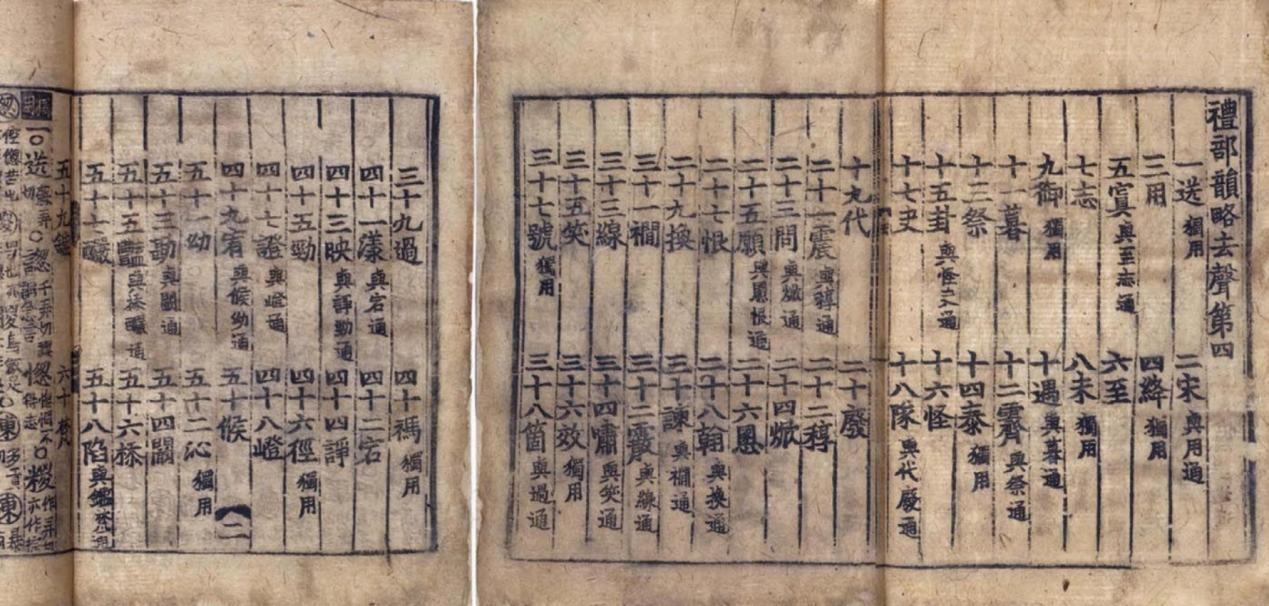 禮部韻略去聲第四
一送獨用 二宋與用通
三用 四絳獨用
五寘與至志通 六至
七志 八未獨用
九御獨用 十遇與暮通
十一暮 十二霽與祭通
十三祭 十四泰獨用
十五卦與怪夬通 十六怪
十七夬 十八隊與代廢通
十九代 二十廢
二十一震與稕通 二十二稕
二十三問與焮通 二十四焮
二十五願與慁恨通 二十六慁
二十七恨 二十八翰與換通
二十九換 三十諫與襉通
三十一襉 三十二霰與線通
三十三線 三十四嘯與笑通
三十五笑 三十六效獨用
三十七號獨用 三十八箇與過通
三十九過 四十禡獨用
四十一漾與宕通 四十二宕
四十三映與諍勁通 四十四諍
四十五勁 四十六徑獨用
四十七證與嶝通 四十八嶝
四十九宥與候幼通 五十候
二
五十一幼 五十二沁獨用
五十三勘與闞通 五十四闞
五十五豔與㮇釅通 五十六㮇
五十七釅 五十八陷與鑑梵通
五十九鑑 六十梵
一〇送